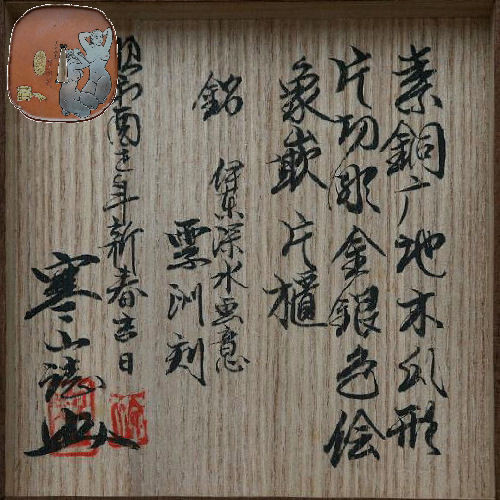 素銅广地木瓜形
片切彫金銀色絵
象嵌片櫃
銘
伊東深水画意
雲洲刻
酉之年新春吉日
寒山誌